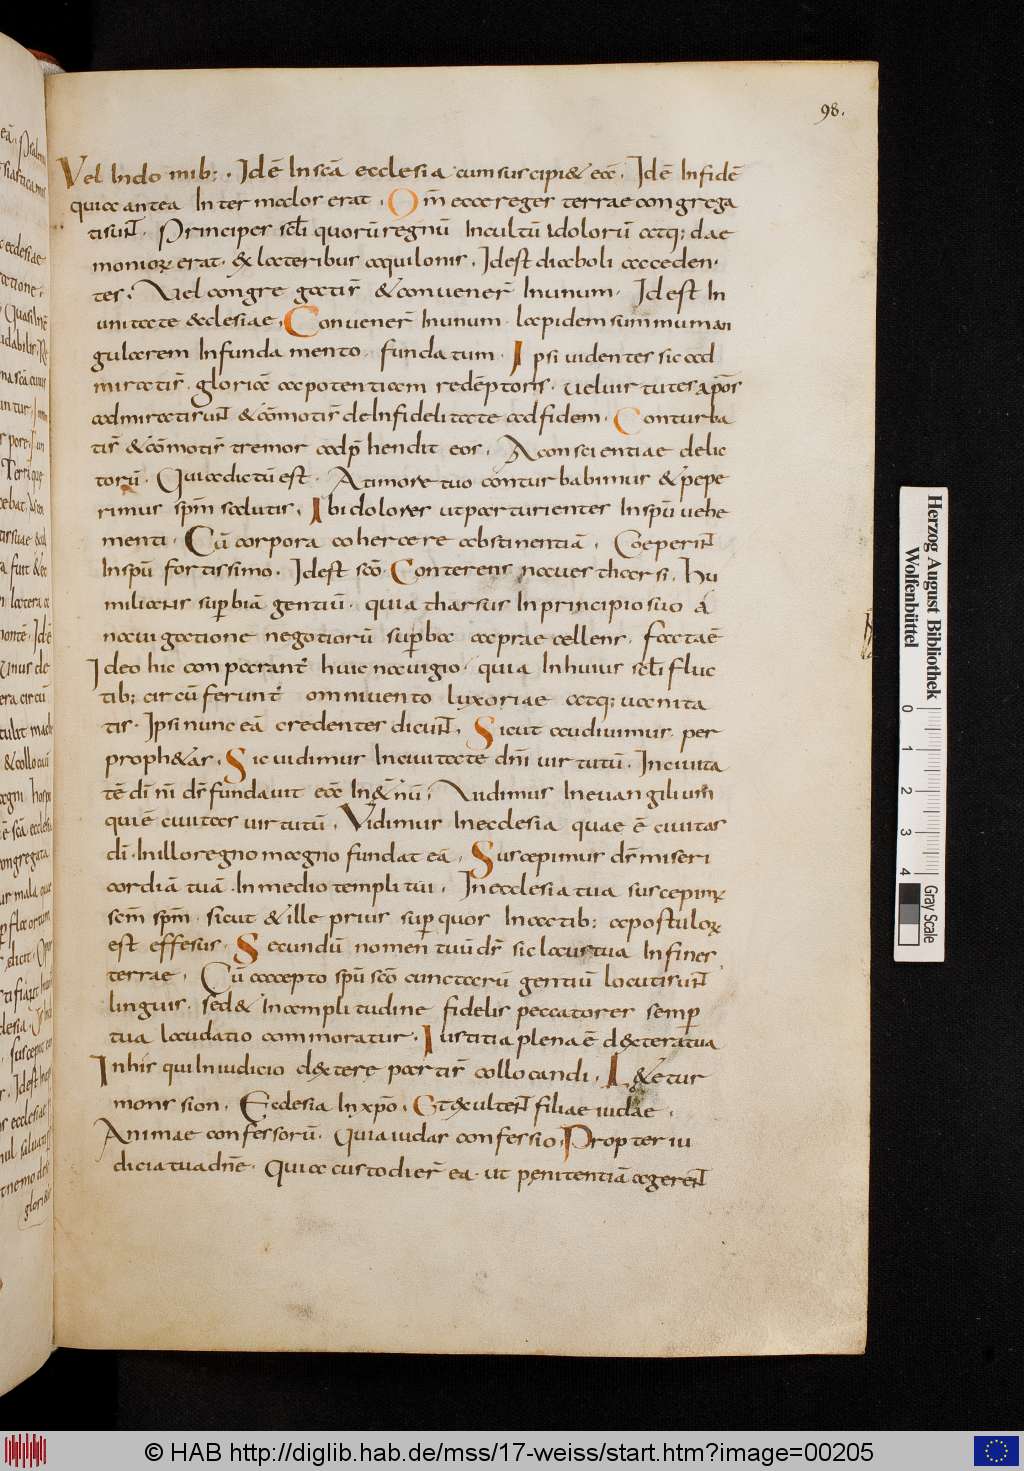 98.
Vel In domib; · Idē In scā ecclesia cum suscipi& eā · Idē In fidē
quia antea Inter malos erat · Om̄ ecce reges terrae congrega
ti sunt · Principes sc̄li quorū regnū In cultū Idolorū atq; dae
monioꝝ erat · Ex lateribus aquilonis · Id est diaboli acceden
tes · Vel congregati s̄ & convener̄ In unum · Id est In
unitate ecclesiae · Convener̄ In unum lapidem summum an
gularem In fundamento fundatum · Ipsi videntes sic ad
mirati s̄ gloriā ac potentiam redēptoris · vel virtutes ap̄os
admirati sunt & cōmoti s̄ de Infidelitate ad fidem · Conturba
ti s̄ & cōmoti s̄ tremor adp̄hendit eos · A conscientiae delic
torū · Quia dictū est · A timore tuo conturbabimur & pepe
rimus sp̄m salutis · Ibi dolores ut parturientes In sp̄u vehe
menti · Cū corpora cohercere abstinentiā · Coeperunt
In sp̄u fortissimo · Id est sc̄o · Conterens naves tharsi · Hu
milians sup̄biā gentiū · quia tharsus In principio suo
navigatione negotiorū sup̄ba ac praecellens · facta ē
Ideo hic conparant̄ huic navigio · quia In huius sc̄li fluc
tib; circūferunt̄ omni vento luxoriae atq; vanita
tis · Ipsi nunc eā credentes dicunt · Sicut audivimus per
proph&as · Sic vidimus In civitate dn̄i virtutū · In civita
tē dī nī ds̄ fundavit eā In &n̄ū · Audimus In evangilium
qui ē civitas virtutū · Vidimus In ecclesia quae ē civitas
dī · In illo regno magno fundat eā · Suscepimus ds̄ miseri
cordiā tuā · In medio templi tui · In ecclesia tua suscepim;
sc̄m sp̄m · sicut & ille prius sup̄ quos In actib; apostuloꝝ
est effusus · Secundū nomen tuū ds̄ sic laus tua In fines
terrae · Cū accepto sp̄u sc̄o cunctarū gentiū locuti sunt
linguis · sed & In amplitudine fidelis peccatores semp̄
tua laudatio commoratur · Iustitia plena ē dextera tua
In his qui In iudicio dextere parti s̄ collocandi · L&etur
mons sion · Ecclesia In xp̄o · Et exultent filiae iudae ·
Animae confessorū · Quia iudas confessio · Propter iu
dicia tua dn̄e · Quia custodier̄ ea · ut penitentiā agerent
Herzog August Bibliothek
Wolfenbüttel
0 1 2 3 4
Gray Scale
© HAB http://diglib.hab.de/mss/17-weiss/start.htm?image=00205